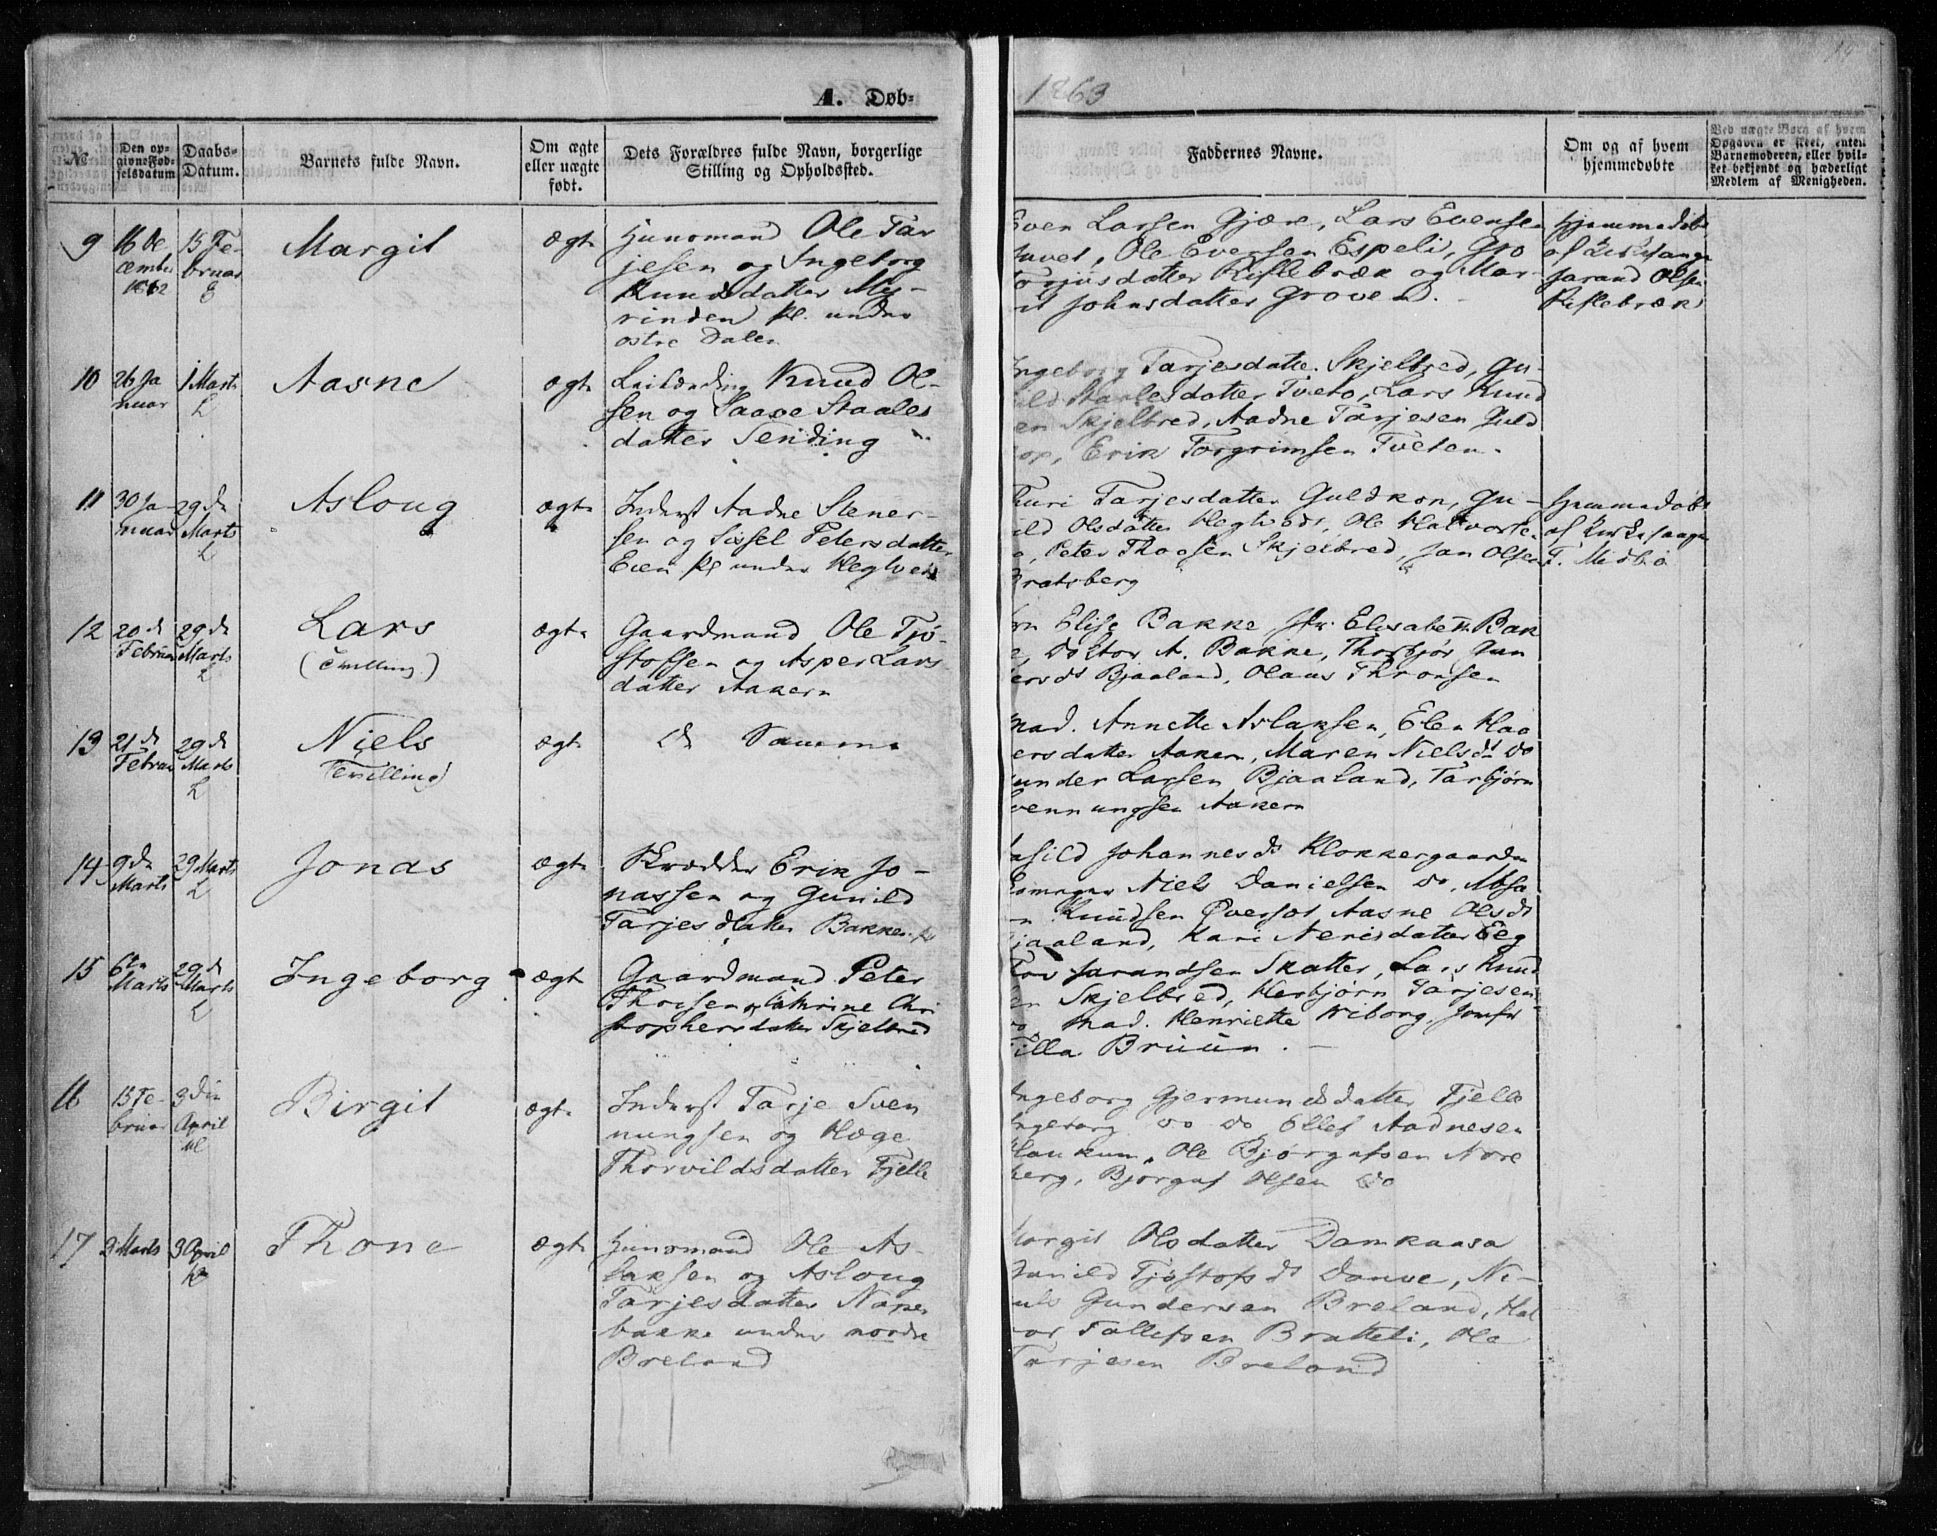 A. Døb-
1863
No.
Den op-
givne Fød-
selsdatum
Daabs-
Datum.
Barnets fulde Navn.
Om ægte
eller uægte
født.
Dets Forældres fulde Navn, borgerlige
Stilling og Opholdssted.
Faddernes Navne.
Om og af hvem
hjemmedøbte
Ved uægte Børn af hvem
Opgaven er skeet, enten
Barnemoderen, eller hvil-
ket bekjendt og hæderligt
Medlem af Menigheden.
9
16 De
cember
1862
15 Fe-
bruar
Margit
ægte
Huusmand Ole Tar
jesen og Ingeborg
Knudsdatter My-
rinden pl. under
østre Dalen
Even Larsen Gjære, Lars Evensen
Ole Evensen Espeli, Gro
Torjusdatter Riflebræk og Mar-
it Johnsdatter Groven.
Hjemmedøbt
af Kirkesanger
Jarand Olsen
Riflebræk
10
26 Ja
nuar
1 Marts
L
Aasne
ægte
Leilænding Knud Ol-
sen og Saave Staales
datter Sending
Ingeborg Tarjesdatter Skjelbred, Gu-
ild Staalesdatter Tveto, Lars Knud
sen Skjelbred, Aadne Tarjesen Guld
Erik Torgrimsen Tveten.
11
30 Ja-
nuar
29 de
Marts
L
Asloug
ægte
Inderst Aadne Stener-
sen og Sissel Petersdatter
Eien pl under Hegtvedt
Thuri Tarjesdatter Guldkon, Gu-
ild Olsdatter Hegtvedt, Ole Halvorsen
Peter Thoesen Skjelbred, Jan Olsen
Bratsberg
Hjemmedøbt
af Kirkesanger
T. Midbø
12
20 de
Februar
29 de
Marts
L
Lars
(Tvilling)
ægte
Gaardmand Ole Tjø-
stofsen og Asper Lars
datter Aakern
Elise Bakke, Elisabeth Bak
A. Bakke, Thorbjør Gun
ersdt Bjaaland, Olaus Thronsen
13
21 de
Februar
29 de
Marts
L
Niels
(Tvilling)
ægte
de Samme
Mad. Annette Aslaksen, Elen Haa
ersdatter Aakern, Maren Nielsdt do
Gunder Larsen Bjaaland, Tarbjørn
Svennungsen Aakern
14
9 de
Marts
29 Marts
L
Jonas
ægte
Skrædder Erik Jo-
nassen og Gunild
Tarjesdatter Bakken pl
Johannesdt Klokkergaarden
Niels Danielsen do, Absa
n Knudsen Øversøt, Aasne Olsdt
Bjaaland, Kari Nerisdatter Eeg
15
6te
Marts
29 de
Marts
L
Ingeborg
ægte
Gaardmand Peter
Thoesen og Cathrine Chri
stophersdatter Skjelbred
Tov Jarandsen Skatter, Lars Knud
sen Skjelbred, Herbjørn Tarjesen
do, Mad. Henriette Wiborg, Jomfr
Tilla Bruun.
16
15 Fe-
bruar
3 die
April
Birgit
ægte
Inderst Tarje Sven
nungsen og Hæge
Thorvildsdatter Fjelle
Ingeborg Gjermundsdatter Fjelle
Ingeborg do do Ellef Aadnesen
Haukum, Ole Bjørgufsen Nore
berg, Bjorguf Olsen do
17
2 Marts
3 April
Thone
ægte
Huusmand Ole As-
laksen og Asloug
Tarjesdatter Napen
bakke under nordre
Breland
Margit Olsdatter Damkaasa
Gunild Tjøstofsdt Danve, Ni-
uls Gundersen Breland, Hal
vor Tollefsen Bratteli, Ole
Tarjesen Breland